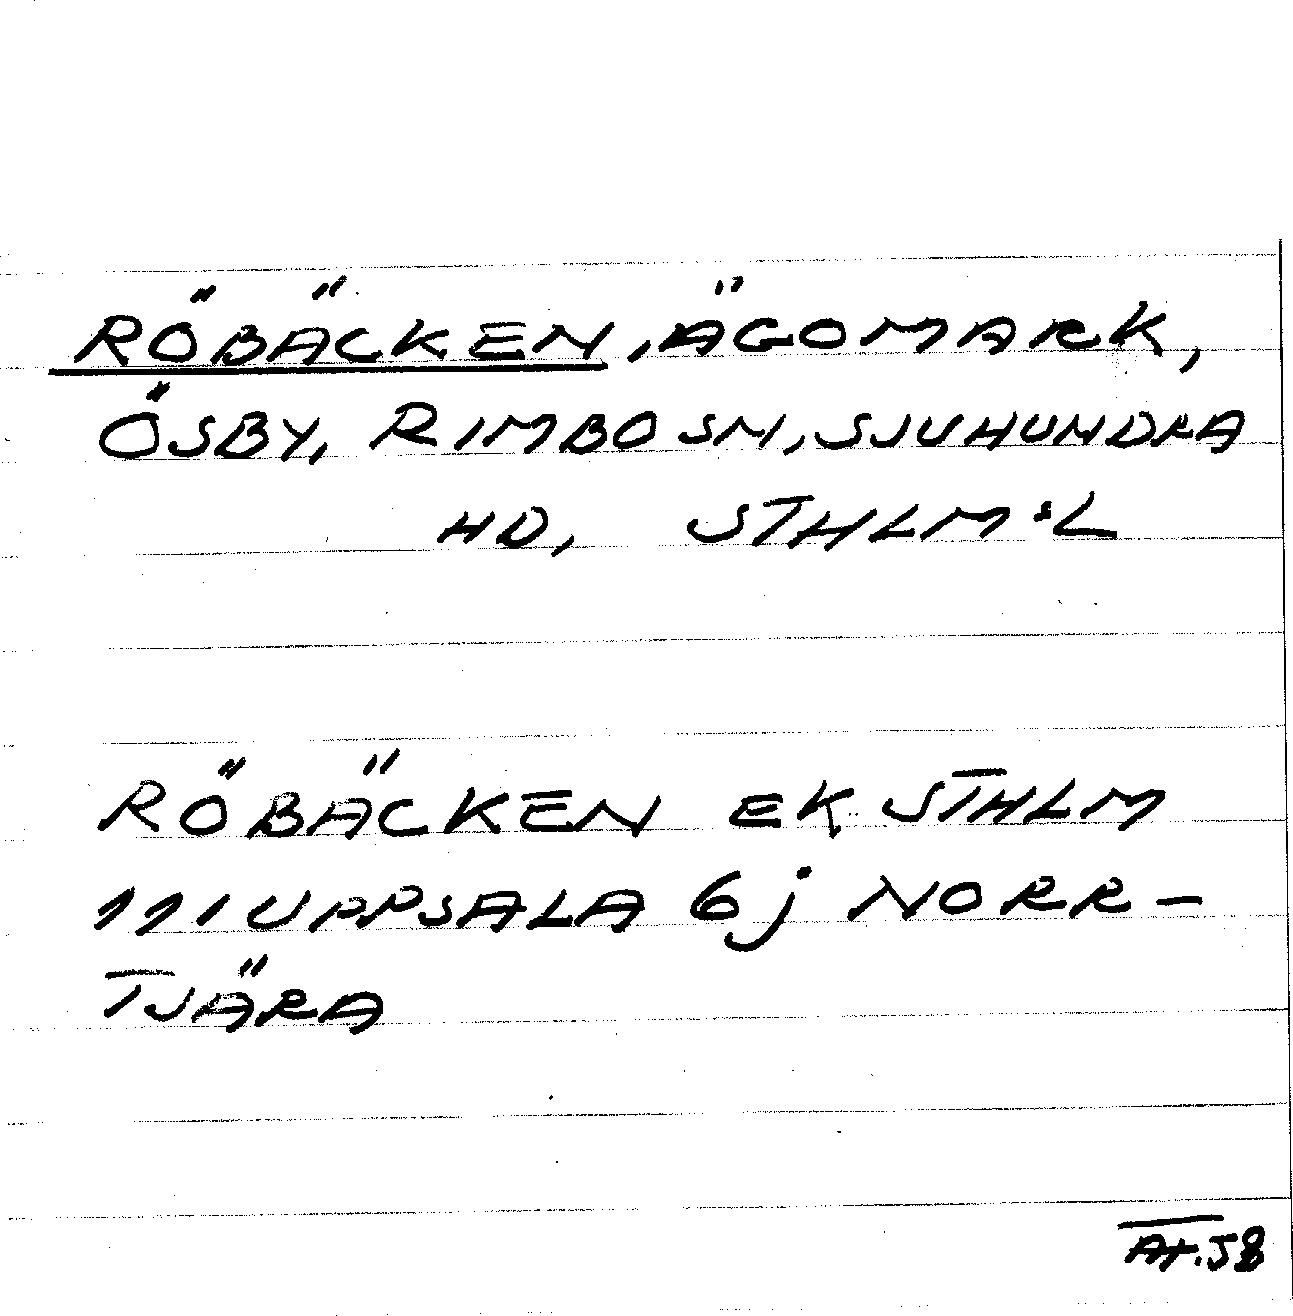 RÖBÄCKEN, ÄGOMARK,
ÖSBY, RIMBO SN, SJUHUNDRA
HD, STHLM:S L
RÖBÄCKEN EK STHLM
111 UPPSALA 6j NORR-
TJÄRA